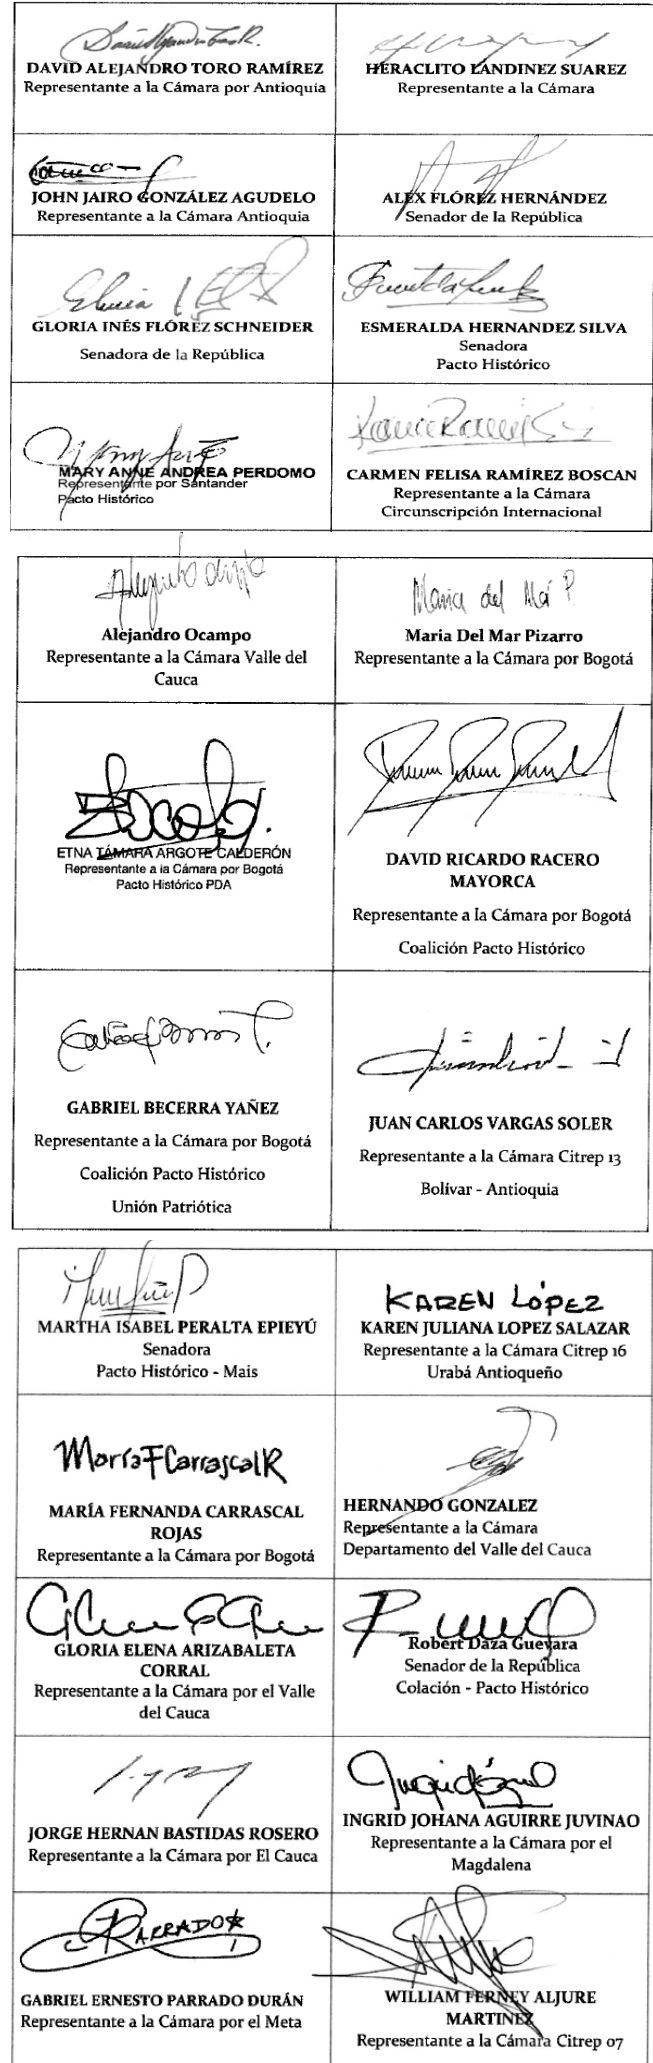 DAVID ALEJANDRO TORO RAMÍREZ
Representante a la Cámara por Antioquia
HERACLITO LANDINEZ SUAREZ
Representante a la Cámara
JOHN JAIRO GONZÁLEZ AGUDELO
Representante a la Cámara Antioquia
ALEX FLÓREZ HERNÁNDEZ
Senador de la República
GLORIA INÉS FLÓREZ SCHNEIDER
Senadora de la República
ESMERALDA HERNANDEZ SILVA
Senadora
Pacto Histórico
MARY ANNE ANDREA PERDOMO
Representante por Santander
Pacto Histórico
CARMEN FELISA RAMÍREZ BOSCAN
Representante a la Cámara
Circunscripción Internacional
Alejandro Ocampo
Representante a la Cámara Valle del
Cauca
Maria del Mar P.
Maria Del Mar Pizarro
Representante a la Cámara por Bogotá
ETNA TÁMARA ARGOTE CALDERÓN
Representante a la Cámara por Bogotá
Pacto Histórico PDA
DAVID RICARDO RACERO
MAYORCA
Representante a la Cámara por Bogotá
Coalición Pacto Histórico
GABRIEL BECERRA YAÑEZ
Representante a la Cámara por Bogotá
Coalición Pacto Histórico
Unión Patriótica
JUAN CARLOS VARGAS SOLER
Representante a la Cámara Citrep 13
Bolívar - Antioquia
MARTHA ISABEL PERALTA EPIEYÚ
Senadora
Pacto Histórico - Mais
KAREN LÓPEZ
KAREN JULIANA LOPEZ SALAZAR
Representante a la Cámara Citrep 16
Urabá Antioqueño
María F Carrascal R
MARÍA FERNANDA CARRASCAL
ROJAS
Representante a la Cámara por Bogotá
HERNANDO GONZALEZ
Representante a la Cámara
Departamento del Valle del Cauca
GLORIA ELENA ARIZABALETA
CORRAL
Representante a la Cámara por el Valle
del Cauca
Robert Daza Guevara
Senador de la República
Colación - Pacto Histórico
JORGE HERNAN BASTIDAS ROSERO
Representante a la Cámara por El Cauca
INGRID JOHANA AGUIRRE JUVINAO
Representante a la Cámara por el
Magdalena
PARRADO
GABRIEL ERNESTO PARRADO DURÁN
Representante a la Cámara por el Meta
WILLIAM FERNEY ALJURE
MARTINEZ
Representante a la Cámara Citrep 07